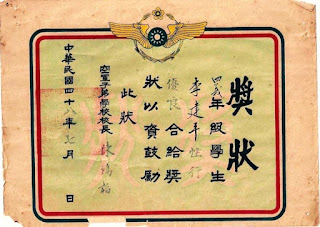 獎狀
年級學生
李建斗性行
優良合給獎
狀以資鼓勵
此狀
空軍子弟學校校長陳鴻韜
中華民國四十八年七月 日